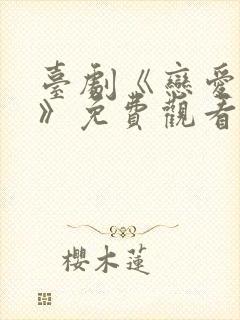 臺劇《戀愛
》免費觀看
櫻木蓮